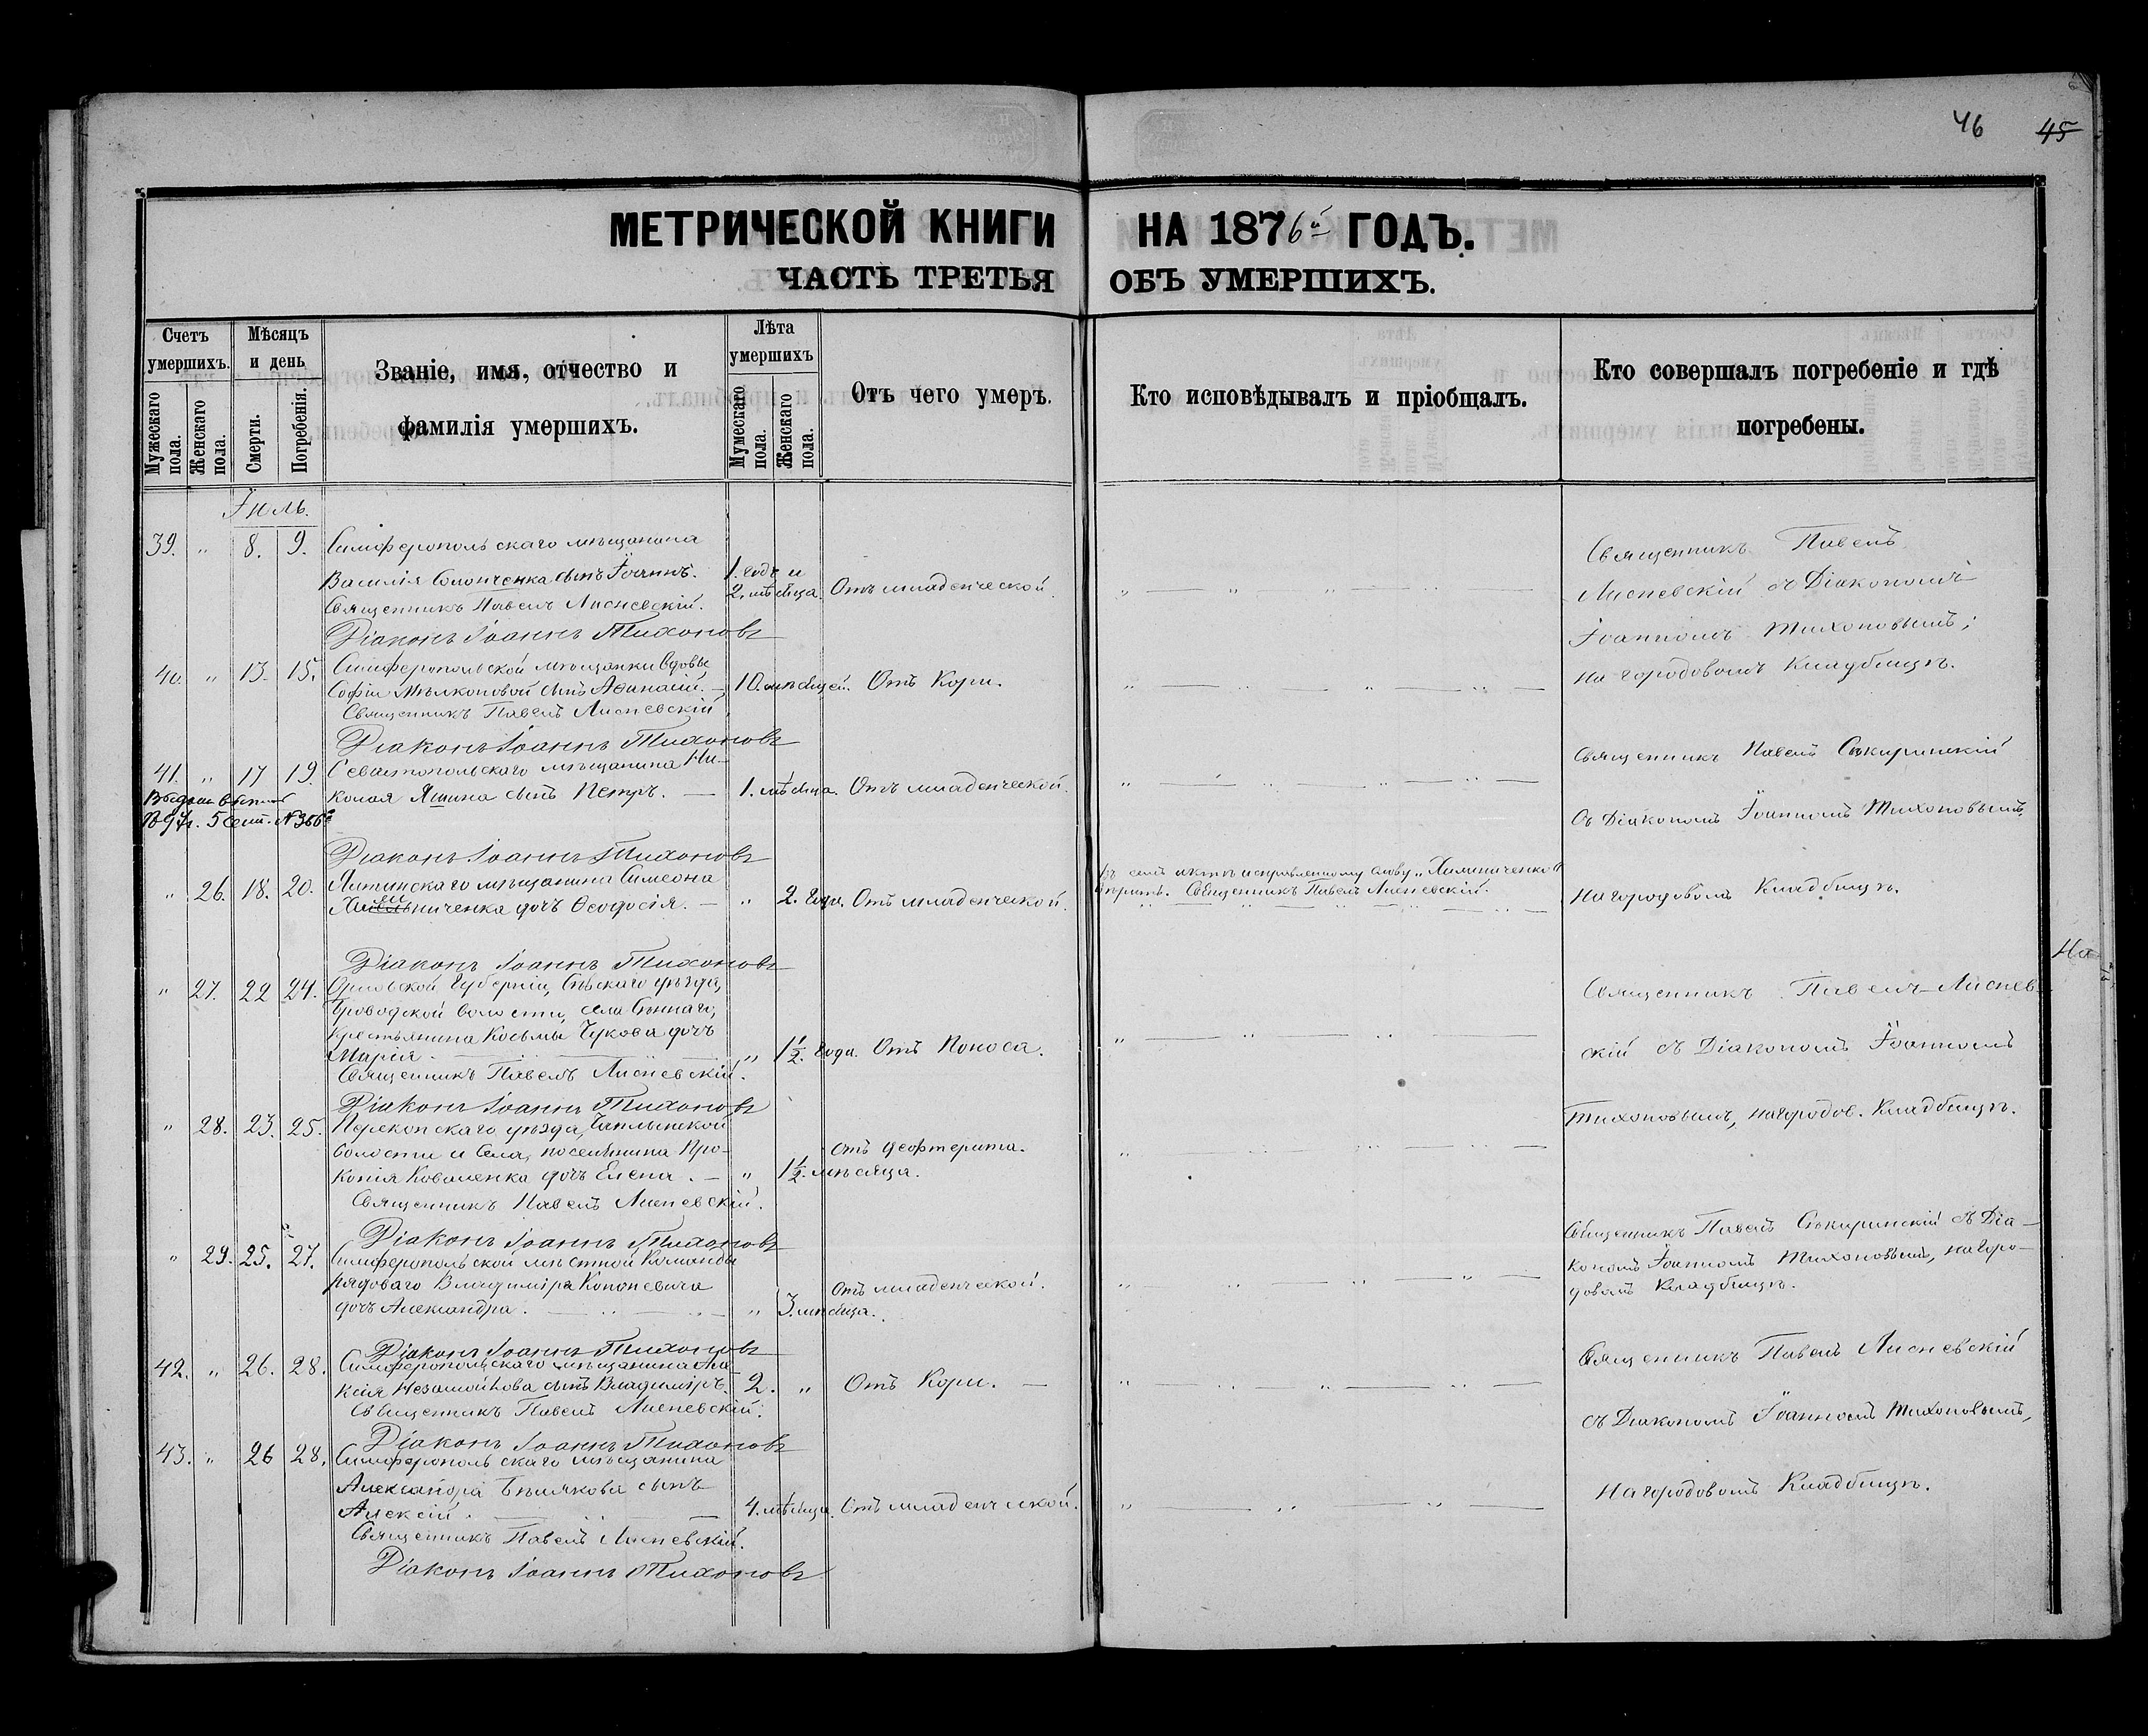 46 45
МЕТРИЧЕСКОЙ КНИГИ НА 1876й ГОДЪ.
ЧАСТЬ ТРЕТЬЯ ОБЪ УМЕРШИХЪ.
Счетъ умершихъ.
Мужескаго пола.
Женскаго пола.
Мѣсяцъ и день
Смерти.
Погребенія.
Званіе, имя, отчество и
фамилія умершихъ.
Лѣта умершихъ
Мумескаго пола.
Женскаго пола.
Отъ чего умеръ.
Кто исповѣдывалъ и пріобщалъ.
Кто совершалъ погребеніе и гдѣ
погребены.
Іюль.
39. " 8. 9. Симферопольскаго мѣщанина
Василія Солонченка сынъ Іоаннъ. 1. годъ и
2. мѣсяца. Отъ младенческой.
Священникъ Павелъ Лисневскій.
Діаконъ Іоаннъ Тихоновъ
Священникъ Павелъ
Лисневскій съ Діакономъ
Іоанномъ Тихоновымъ;
на городовомъ Кладбищѣ.
40. " 13. 15. Симферопольской мѣщанки вдовы
Софіи Мѣлконовой сынъ Аѳанасій. — 10. мѣсяцей. Отъ Кори.
Священникъ Павелъ Лисневскій
Діаконъ Іоаннъ Тихоновъ
41. " 17 19 Севастопольскаго мѣщанина Ни-
колая Яшина сынъ Петръ. — 1. мѣсяца. Отъ младенческой.
5 Сент. №366
Діаконъ Іоаннъ Тихоновъ
Священникъ Павелъ Сѣкиринскій
съ Діакономъ Іоанномъ Тихоновымъ,
на городовомъ Кладбищѣ.
" 26. 18. 20. мѣщанина Симеона
дочъ Ѳеодосія. — " 2. года. Отъ младенческой.
Въ семъ актѣ исправленному слову „Химиниченко"
вѣрить. Священникъ Павелъ Лисневскій.
Діаконъ Іоаннъ Тихоновъ
" 27. 22 24. Орловской Губерніи, Сѣвскаго уѣзда,
волости, села
Крестьянина Косьмы Чукова дочъ
Марія. " 1½. года. Отъ Поноса.
Священникъ Павелъ Лисневскій.
Діаконъ Іоаннъ Тихоновъ
Священникъ Павелъ Лиснев-
скій съ Діакономъ Іоанномъ
Тихоновымъ, на городов. Кладбищѣ.
" 28. 23. 25. Перекопскаго уѣзда, Чаплынской
волости и Села, поселянина Про-
копія Коваленка дочъ Елена. — " 1½. мѣсяца. отъ деѳтерита.
Священникъ Павелъ Лисневскій.
Діаконъ Іоаннъ Тихоновъ
" 29. 25. 27. Симферопольской мѣстной Команды
рядоваго Владиміра Кононевича
дочъ Александра. " 3. мѣсяца. отъ младенческой.
Діаконъ Іоаннъ Тихоновъ
Священникъ Павелъ Сѣкиринскій съ Діа-
кономъ Іоанномъ Тихоновымъ, на горо-
довомъ Кладбищѣ.
42. " 26. 28. Симферопольскаго мѣщанина Але-
ксія Незамойкова сынъ Владиміръ. 2. " Отъ Кори. —
Священникъ Павелъ Лисневскій.
Діаконъ Іоаннъ Тихоновъ
43. " 26 28. Симферопольскаго мѣщанина
Александра Бѣлякова сынъ
Алексій. 4. мѣсяца. Отъ младенческой.
Священникъ Павелъ Лисневскій.
Діаконъ Іоаннъ Тихоновъ
Священникъ Павелъ Лисневскій
съ Діакономъ Іоанномъ Тихоновымъ,
на городовомъ Кладбищѣ.